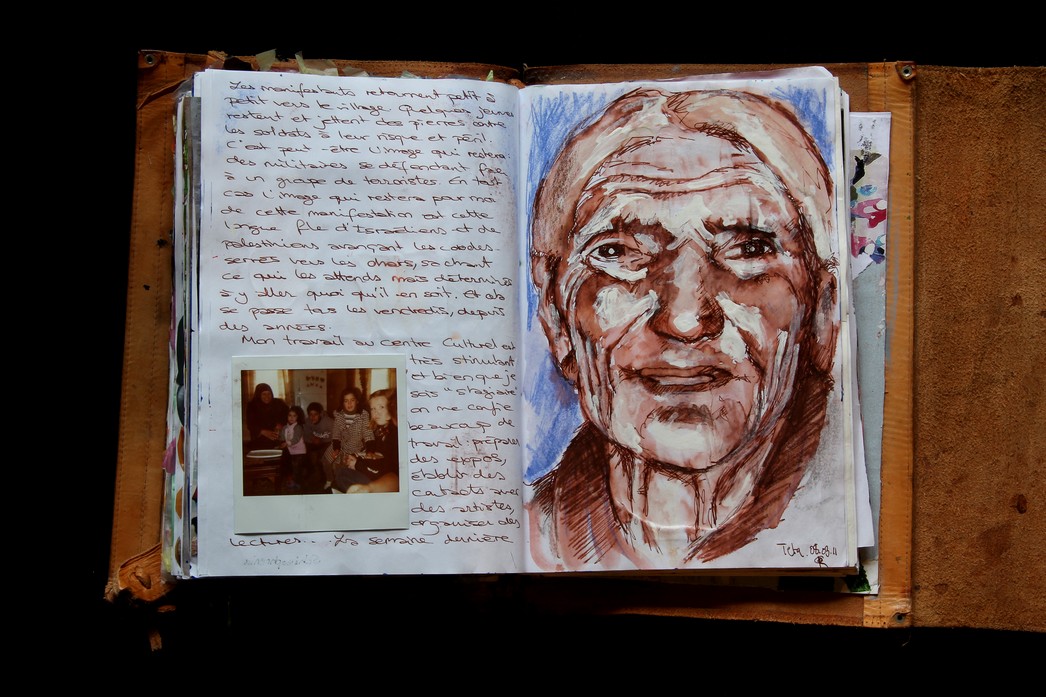 Les manifestants retournent petit à
petit vers le village. Quelques jeunes
restent et jettent des pierres contre
les soldats à leur risque et péril.
C'est peut-être l'image qui restera:
des militaires se défendant face
à un groupe de terroristes. En tout
cas l'image qui restera pour moi
de cette manifestation est cette
longue file d'Israéliens et de
Palestiniens avançant les coudes
serrés vers les chars, sachant
ce qui les attends mais déterminés
à y aller quoi qu'il en soit. Et cela
se passe tous les vendredis, depuis
des années.
Mon travail au Centre Culturel est
très stimulant
et bien que je
sois "stagiaire"
on me confie
beaucoup de
travail: préparer
des expos,
établir des
contacts avec
des artistes,
organiser des
lectures... La semaine dernière
08.08.11